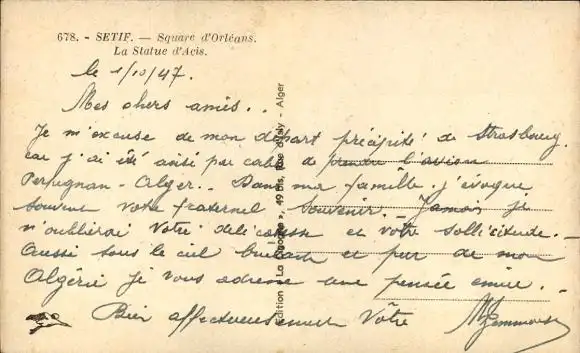 678. - SETIF. — Square d'Orléans.
La Statue d'Acis.
le 1/10/47.
Mes chers amis..
Je m'excuse de mon départ précipité de Strasbourg.
car j'ai été avisé par cable de prendre l'avion
Perpignan - Alger.. Dans ma famille j'évoque
souvent votre fraternel souvenir. Jamais je
n'oublierai votre délicatesse et votre sollicitude. -
Aussi sous le ciel et pur de mon
Algérie je vous adresse une pensée émue. -
Bien affectueusement Vôtre
Edition « La Cigogne », 49 bis, rue d'Isly - Alger